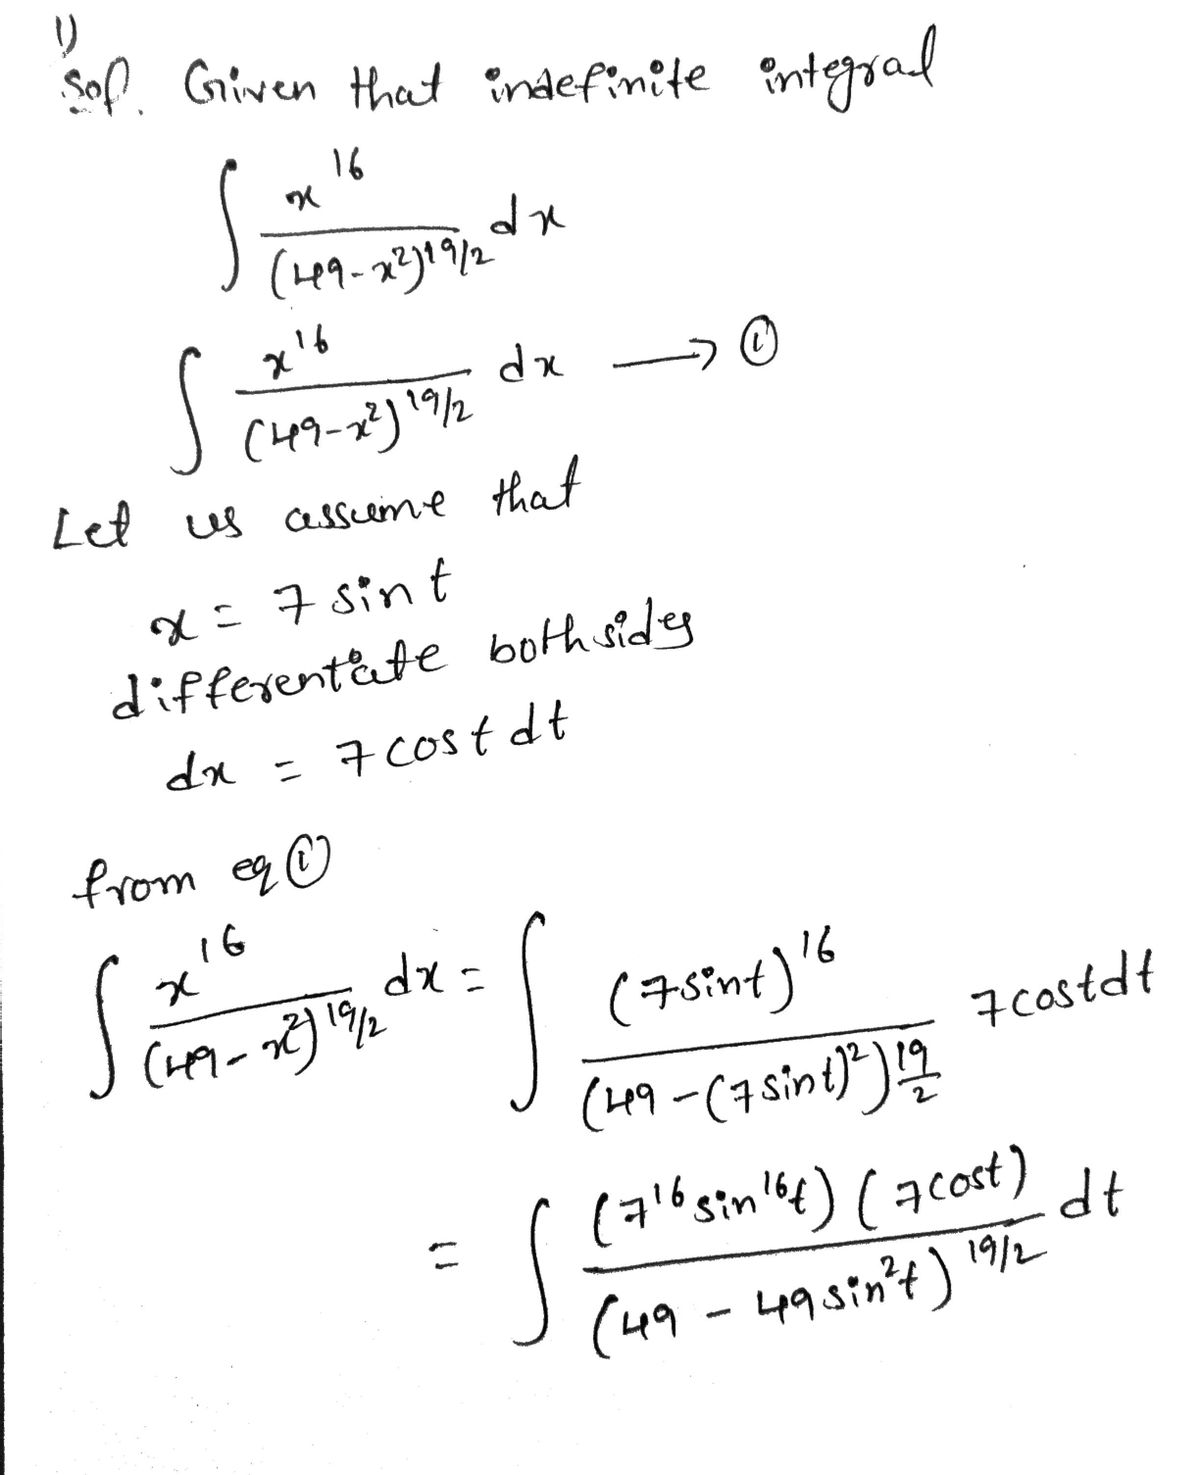 1)
Sol. Given that indefinite integral
∫ x^16 / (49-x^2)^19/2 dx
∫ x^16 / (49-x^2)^19/2 dx → ①
Let us assume that
x = 7 sin t
differentiate both sides
dx = 7 cos t dt
from eq ①
∫ x^16 / (49-x^2)^19/2 dx = ∫ (7sint)^16 / (49-(7sint)^2)^19/2 7costdt
= ∫ (7^16 sin^16 t) (7cost) / (49 - 49 sin^2 t)^19/2 dt